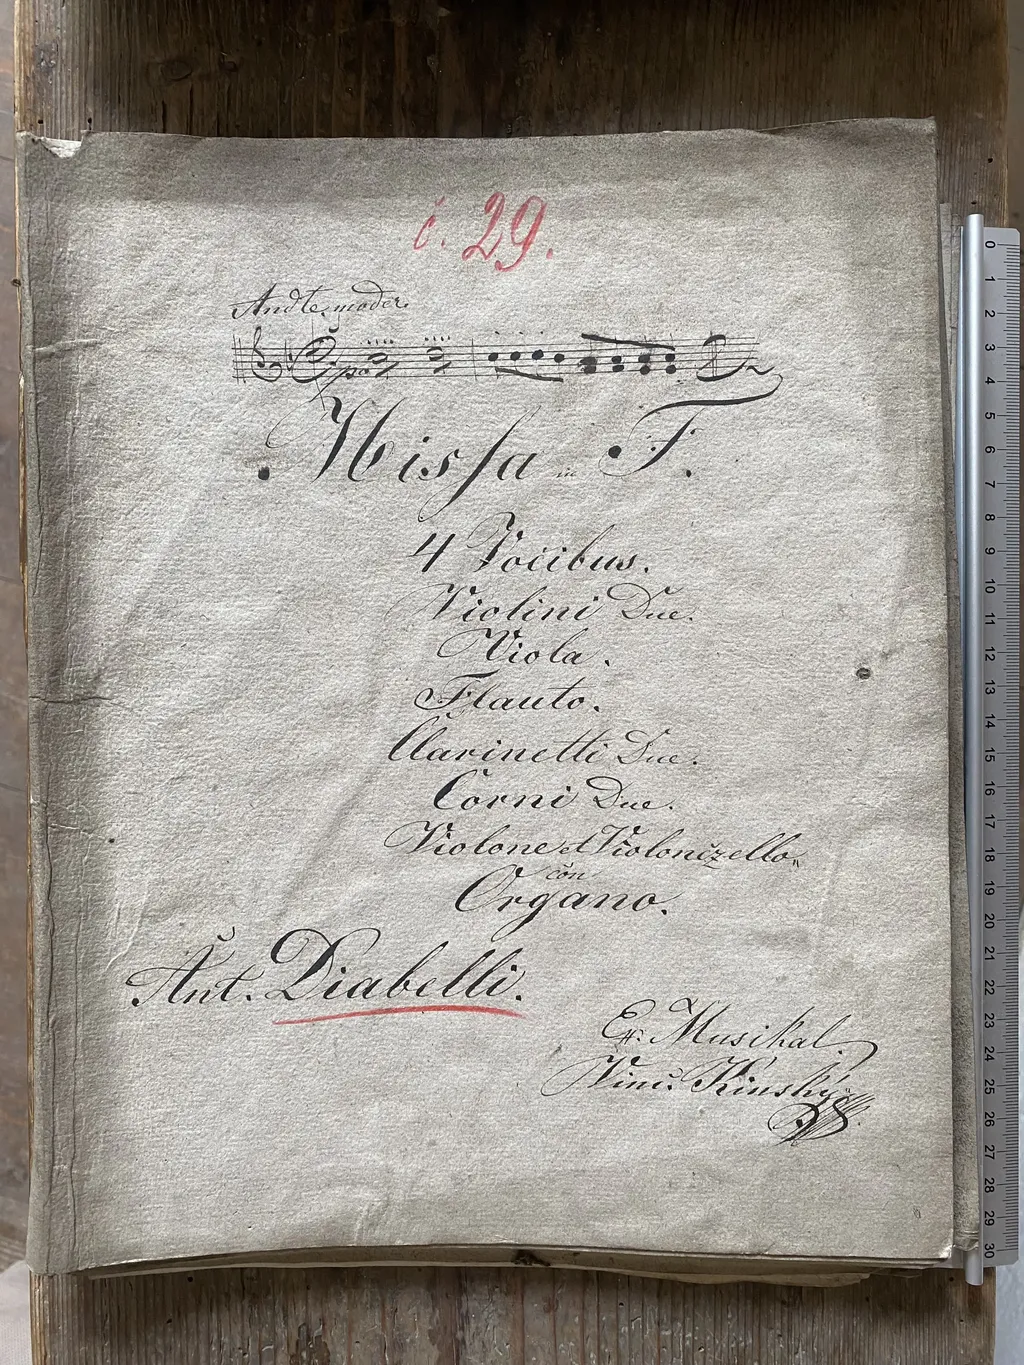 č. 29.
Andte. moder.
Missa in F.
4 Vocibus.
Violini Due.
Viola.
Flauto.
Clarinetti Due.
Corni Due.
Violone et Violonczello.
con
Organo.
Ant. Diabelli.
Ex. Musikal.
Vinc. Kinský
0 1 2 3 4 5 6 7 8 9 10 11 12 13 14 15 16 17 18 19 20 21 22 23 24 25 26 27 28 29 30